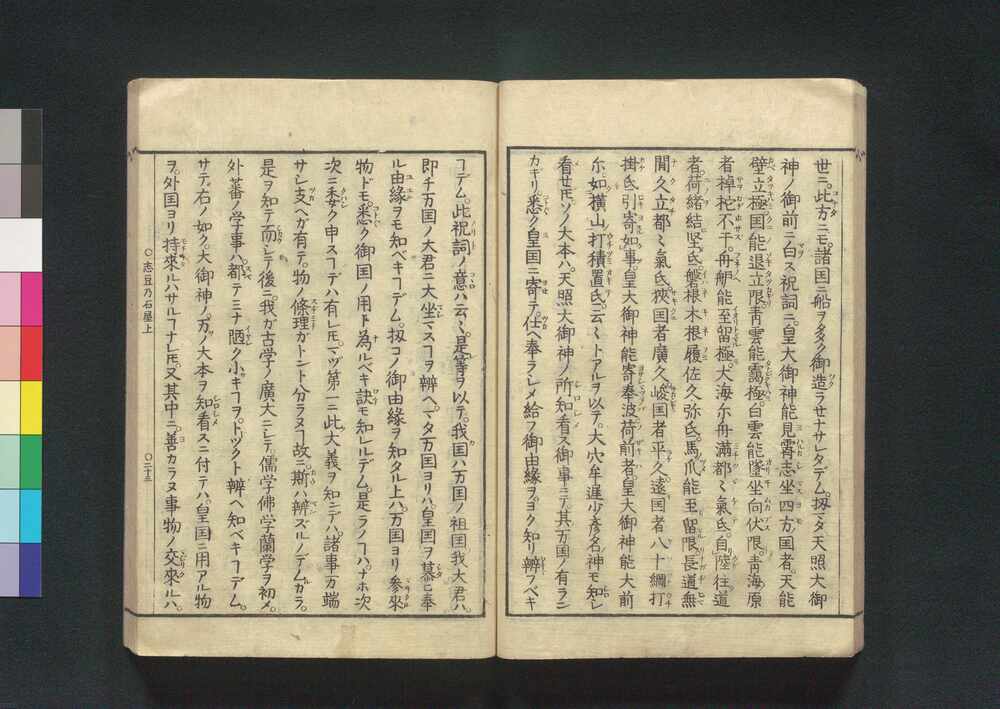 世ニ。此方ニモ。諸国ニ船ヲタク御造ラサナサレタデム。扨マタ天照大御
神ノ御前ニ白ス祝詞ニ。皇大御神能見霽志坐四方国者。天能
壁立極国能退立限。青雲能靄極。白雲能墜坐向伏限。青海原
者棹柁不干。舟艫能至留極。大海尓舟満都〻氣氐。自陸往道
者。荷緒結堅氐。磐根木根履佐久弥氐。馬爪能至留限。長道無
間久立都〻氣氐。狭国者廣久峻国者平久遠国者八十綱打
掛氐引寄如事。皇大御神能寄奉波。荷前者。皇大御神能大前
尓。如横山打積置氐。云〻トアルヲ以テ。大穴牟遅少彦名神モ知シ
看サヌ。ソノ大本ハ。天照大御神ノ所知看ス御事ニテ。其万国ノ有ラン
カギリ。悉ク皇国ニ寄テ。仕ヘ奉ラシメ給フ御由縁ヲ。ヨク知リ辨フベキ
ヿデム。此祝詞ノ意ハ云〻。是等ヲ以テ。我国ハ万国ノ祖国我大君ハ。
即チ万国ノ大君ニ大坐マスヿヲ辨ヘ。マタ万国ヨリハ。皇国ヲ慕ヒ奉
ル由縁ヲモ知ベキヿデム。扨コノ御由縁ヲ知タル上ハ。万国ヨリ参來
物ドモ。悉ク御国ノ用ト為ルベキ訣モ知レルデム。是ラノヿハ。ナホ次
次ニ委ク申スヿデハ有レ𪜈。マヅ第一ニ此大義ヲ知ンデハ。諸事カ端
サシ支ヘガ有テ。物ノ條理ガトント分ラヌヿ故ニ。斯ハ辨ズルノデムカラ。
是ヲ知テ而シテ後ニ。我ガ古学ノ廣大ニシテ。儒学佛学蘭学ヲ初メ。
外蕃ノ学事ハ。都テミナ陋ク小キヿヲ。トヅクト辨ヘ知ベキヿデム。
サテ。右ノ如ク。大御神ノ。万ノ大本ヲ知看スニ付テハ。皇国ニ用アル物
ヲ。外国ヨリ持來ルハサルヿナレ𪜈。又其中ニ。善カラヌ事物ノ交來ルハ。
○志豆乃石屋上
○二十三